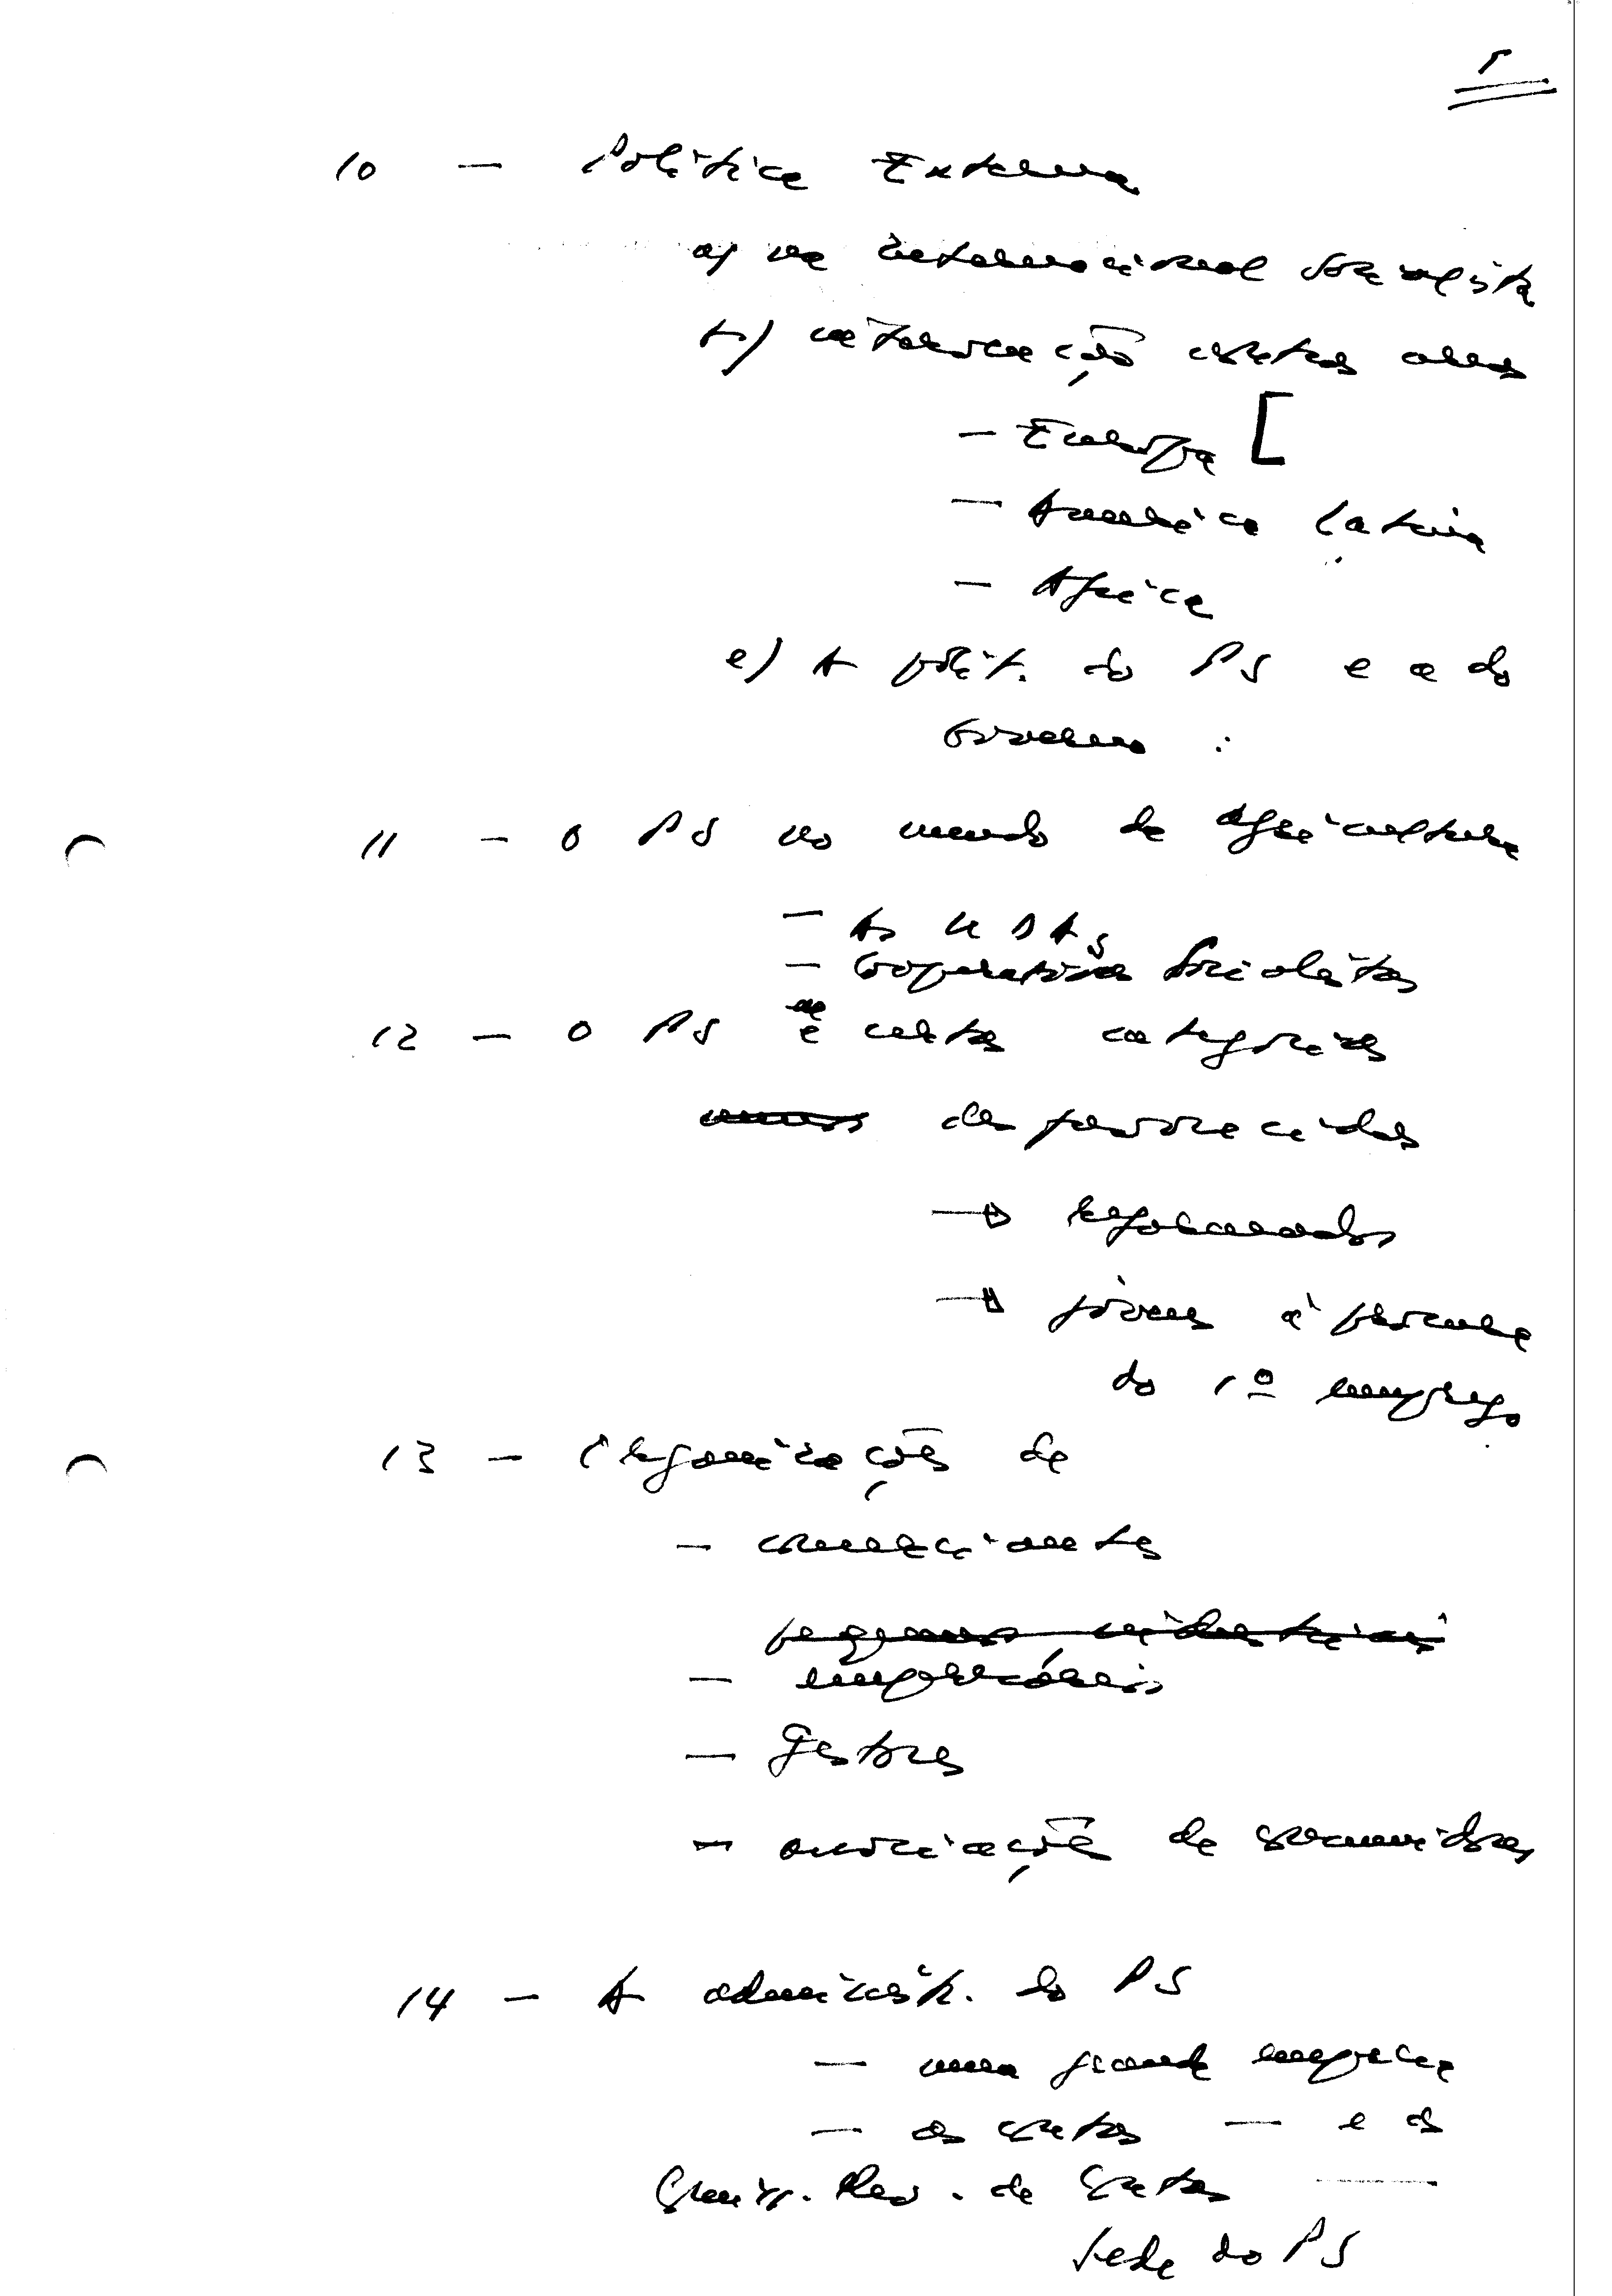 5
10 — Política Externa
a) na internacional socialista
b) intervenção noutras áreas
— Europa [
— América Latina
— África
c) A polít. do PS e a do
Governo :
11 — O PS no mundo da agricultura
— As UDAs
— Cooperativas Socialistas
12 — O PS e as certas categorias
desfavorecidas
→ reformados
→ jovens à procura
do 1º emprego
13 — Organizações de
— comerciantes
pequenos industriais
— empresários
— Gestores
— associações de consumidores
14 — A administ. do PS
— uma grande empresa
— as contas — e as
Comiss. Rev. de Contas
Sede do PS